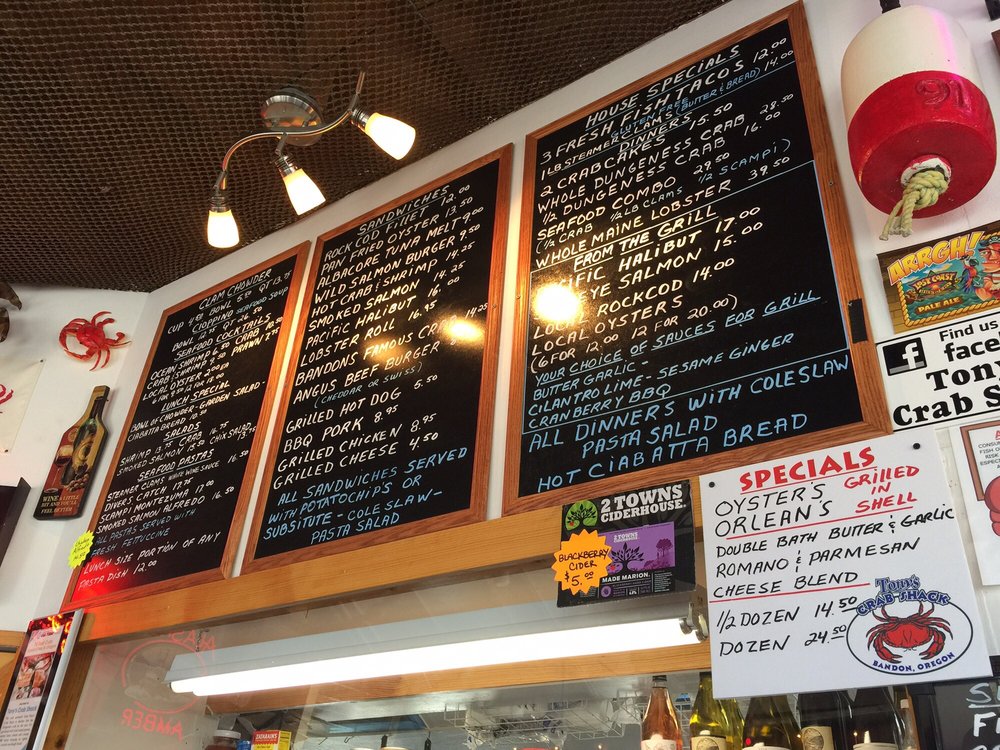 CLAM CHOWDER
CUP 4.50 BOWL 5.50 QT 13.75
CIOPPINO SEAFOOD SOUP
BOWL QT 26.50
SEAFOOD COCKTAILS
OCEAN SHRIMP 6.50 CRAB 10.50
CRAB & SHRIMP 8.50 PRAWN
LOCAL OYSTER 2.00
6 FOR 12 FOR
LUNCH SPECIAL
BOWL OF CHOWDER - GARDEN SALAD -
CIABATTA BREAD 10.50
SALADS
SHRIMP 13.75 CRAB 16.75
SMOKED SALMON 15.00 CHIX SALAD
SEAFOOD PASTAS
STEAMER CLAMS WHITE WINE SAUCE 16.50
DIVERS CATCH 17.75
SCAMPI MONTEZUMA 17.00
SMOKED SALMON ALFREDO 16.50
ALL PASTAS SERVED WITH
FRESH FETTUCCINE
LUNCH SIZE PORTION OF ANY
PASTA DISH 12.00
SANDWICHES
ROCK COD FILLET 12.00
PAN FRIED OYSTER 13.50
ALBACORE TUNA MELT 9.00
WILD SALMON BURGER 9.50
HOT CRAB & SHRIMP 14.25
SMOKED SALMON 14.25
PACIFIC HALIBUT 16.00
LOBSTER ROLL 16.95
BANDONS FAMOUS CRAB 14.25
ANGUS BEEF BURGER
(CHEDDAR OR SWISS)
GRILLED HOT DOG 5.50
BBQ PORK 8.95
GRILLED CHICKEN 8.95
GRILLED CHEESE 4.50
ALL SANDWICHES SERVED
WITH POTATO CHIPS OR
SUBSTITUTE - COLESLAW -
PASTA SALAD
HOUSE SPECIALS
3 FRESH FISH TACOS 12.00
GLUTEN FREE
1 LB STEAMER CLAMS (BUTTER & BREAD) 14.00
DINNERS
2 CRABCAKES 15.50
WHOLE DUNGENESS CRAB 28.50
1/2 DUNGENESS CRAB 16.00
SEAFOOD COMBO 29.50
(1/2 CRAB 1/2 LB CLAMS 1/2 SCAMPI)
WHOLE MAINE LOBSTER 39.50
FROM THE GRILL
PACIFIC HALIBUT 17.00
SALMON 15.00
LOCAL ROCKCOD 14.00
LOCAL OYSTERS
(6 FOR 12.00 12 FOR 20.00)
YOUR CHOICE OF SAUCES FOR GRILL
BUTTER GARLIC -
CILANTRO LIME - SESAME GINGER
CRANBERRY BBQ
ALL DINNERS WITH COLESLAW
PASTA SALAD
HOT CIABATTA BREAD
91
ARRGH!
LOST COAST
PALE ALE
Find us
face
Tony
Crab S
2 TOWNS
CIDERHOUSE.
2 TOWNS
MADE MARION.
BLACKBERRY
CIDER
$5.00
SPECIALS
OYSTER'S GRILLED
ORLEAN'S IN
SHELL
DOUBLE BATH BUTTER & GARLIC
ROMANO & PARMESAN
CHEESE BLEND
1/2 DOZEN 14.50
DOZEN 24.50
Tony's
CRAB SHACK
BANDON, OREGON
WINE A LITTLE
AMBER
ZATARAIN'S